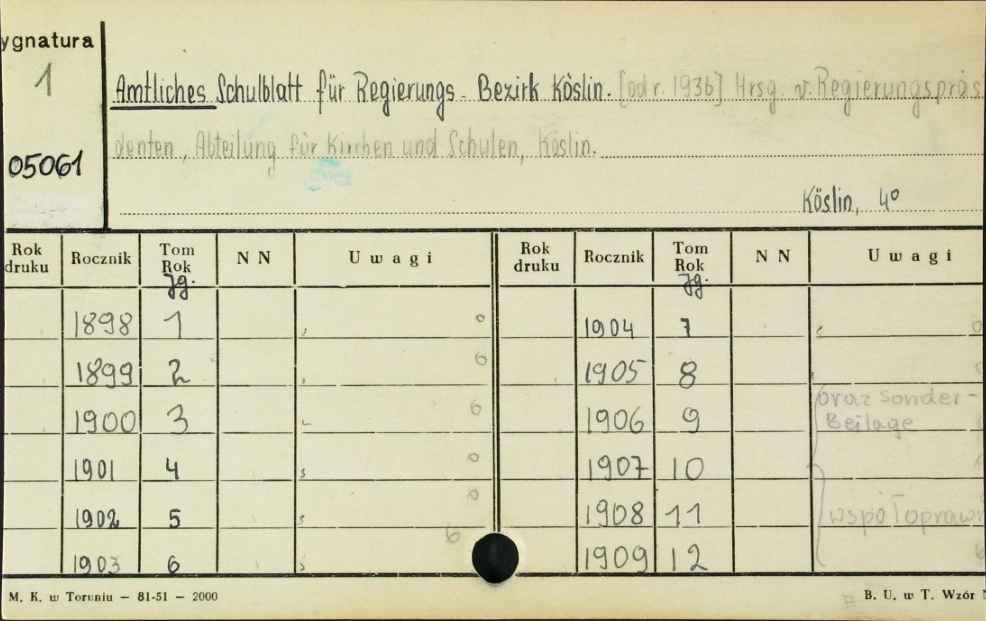 ygnatura
1
05061
Amtliches Schulblatt für Regierungs-Bezirk Köslin. [od r. 1936] Hrsg. v. Regierungspräs
denten, Abteilung für Kirchen und Schulen, Köslin.
Köslin, 4º
Rok druku Rocznik Tom Rok Jg. N N Uwagi Rok druku Rocznik Tom Rok Jg. N N Uwagi
1898 1 1904 7
1899 2 1905 8
1900 3 1906 9 oraz Sonder-
Beilage
1901 4 1907 10
1902 5 1908 11 współopraw
1903 6 1909 12
M. K. w Toruniu — 81-51 — 2000 B. U. w T. Wzór